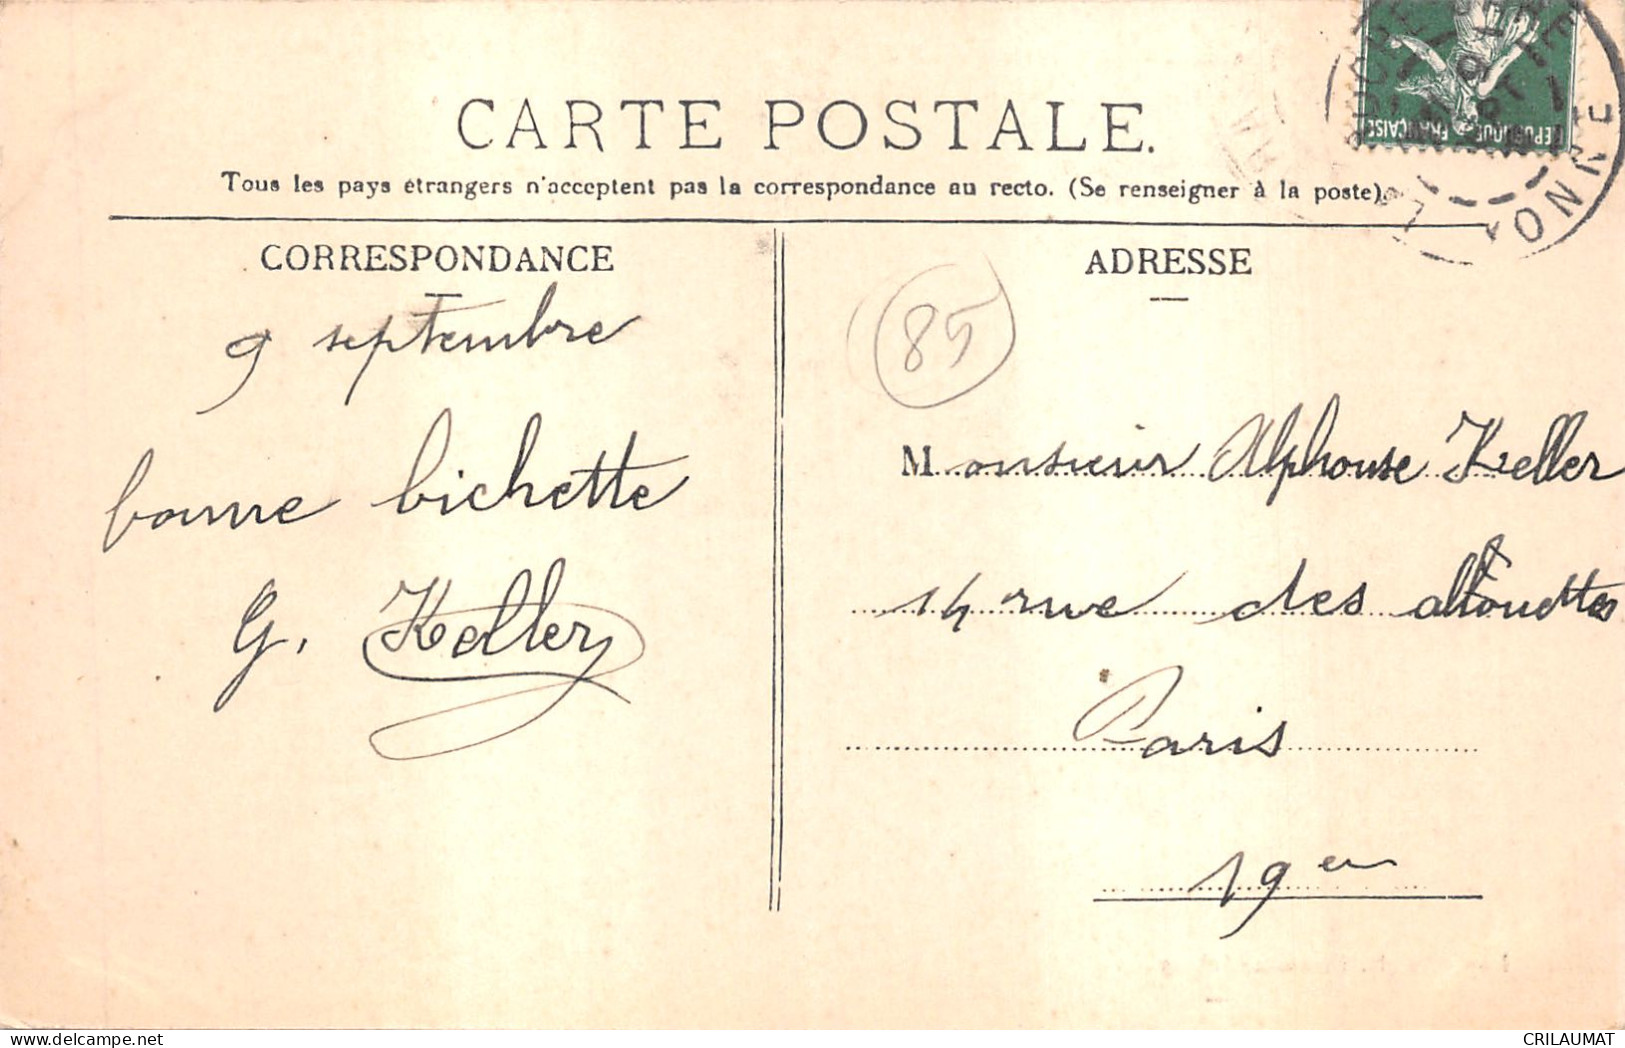 CARTE POSTALE.
Tous les pays étrangers n'acceptent pas la correspondance au recto. (Se renseigner à la poste).
CORRESPONDANCE
9 septembre
bonne bichette
G. Keller
ADRESSE
85
Monsieur Alphonse Keller
14 rue des allouettes
Paris
19em
REPUBLIQUE FRANÇAISE
YONNE
CRILAUMAT